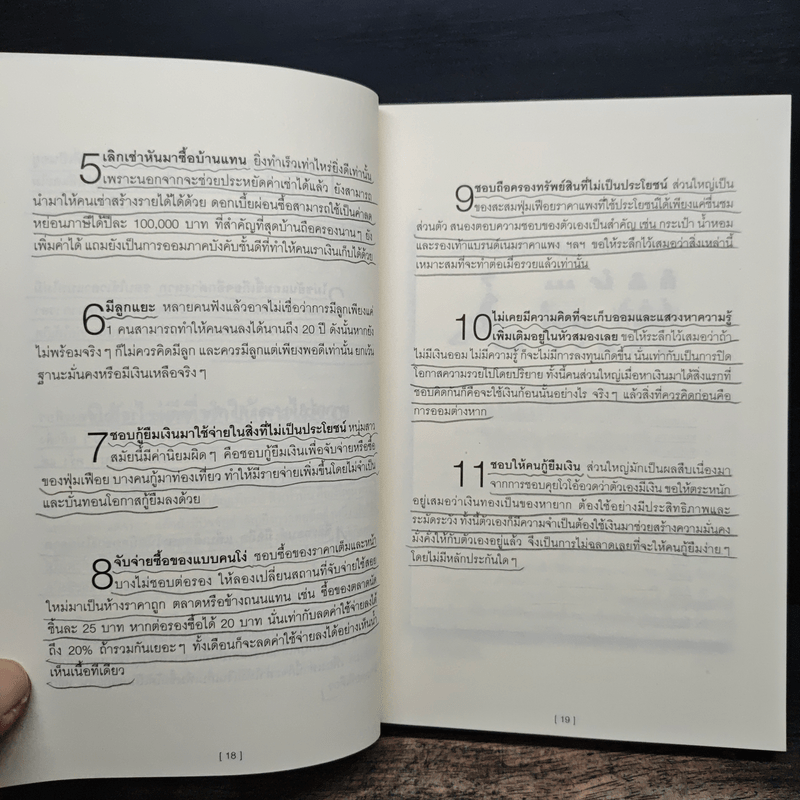 5 เลิกเช่าหันมาซื้อบ้านแทน ยิ่งทำเร็วเท่าไหร่ยิ่งดีเท่านั้น
เพราะนอกจากจะช่วยประหยัดค่าเช่าได้แล้ว ยังสามารถ
นำมาให้คนเช่าสร้างรายได้ได้ด้วย ดอกเบี้ยผ่อนซื้อสามารถใช้เป็นค่าลด
หย่อนภาษีได้ปีละ 100,000 บาท ที่สำคัญที่สุดบ้านถือครองนานๆ ยิ่ง
เพิ่มค่าได้ แถมยังเป็นการออมภาคบังคับชั้นดีที่ทำให้คนเราเงินเก็บได้ด้วย
6 มีลูกแยะ หลายคนฟังแล้วอาจไม่เชื่อว่าการมีลูกเพียงแค่
1 คนสามารถทำให้คนจนลงได้นานถึง 20 ปี ดังนั้นหากยัง
ไม่พร้อมจริงๆ ก็ไม่ควรคิดมีลูก และควรมีลูกแต่เพียงพอดีเท่านั้น ยกเว้น
ฐานะมั่นคงหรือมีเงินเหลือจริงๆ
7 ชอบกู้ยืมเงินมาใช้จ่ายในสิ่งที่ไม่เป็นประโยชน์ หนุ่มสาว
สมัยนี้มีค่านิยมผิดๆ คือชอบกู้ยืมเงินเพื่อจับจ่ายหรือซื้อ
ของฟุ่มเฟือย บางคนกู้มาท่องเที่ยว ทำให้มีรายจ่ายเพิ่มขึ้นโดยไม่จำเป็น
และบั่นทอนโอกาสกู้ยืมลงด้วย
8 จับจ่ายซื้อของแบบคนโง่ ชอบซื้อของราคาเต็มและหน้า
บางไม่ชอบต่อรอง ให้ลองเปลี่ยนสถานที่จับจ่ายใช้สอย
ใหม่มาเป็นห้างราคาถูก ตลาดหรือข้างถนนแทน เช่น ซื้อของตลาดนัด
ชิ้นละ 25 บาท หากต่อรองซื้อได้ 20 บาท นั่นเท่ากับลดค่าใช้จ่ายลงได้
ถึง 20% ถ้ารวมกันเยอะๆ ทั้งเดือนก็จะลดค่าใช้จ่ายลงได้อย่างเห็นน้ำ
เห็นเนื้อทีเดียว
[ 18 ]
9 ชอบถือครองทรัพย์สินที่ไม่เป็นประโยชน์ ส่วนใหญ่เป็น
ของสะสมฟุ่มเฟือยราคาแพงที่ใช้ประโยชน์ได้เพียงแค่ชื่นชม
ส่วนตัว สนองตอบความชอบของตัวเองเป็นสำคัญ เช่น กระเป๋า น้ำหอม
และรองเท้าแบรนด์เนมราคาแพง ฯลฯ ขอให้ระลึกไว้เสมอว่าสิ่งเหล่านี้
เหมาะสมที่จะทำต่อเมื่อรวยแล้วเท่านั้น
10 ไม่เคยมีความคิดที่จะเก็บออมและแสวงหาความรู้
เพิ่มเติมอยู่ในหัวสมองเลย ขอให้ระลึกไว้เสมอว่าถ้า
ไม่มีเงินออม ไม่มีความรู้ ก็จะไม่มีการลงทุนเกิดขึ้น นั่นเท่ากับเป็นการปิด
โอกาสความรวยไปโดยปริยาย ทั้งนี้คนส่วนใหญ่เมื่อหาเงินมาได้สิ่งแรกที่
ชอบคิดกันก็คือจะใช้เงินก้อนนั้นอย่างไร จริงๆ แล้วสิ่งที่ควรคิดก่อนคือ
การออมต่างหาก
11 ชอบให้คนกู้ยืมเงิน ส่วนใหญ่มักเป็นผลสืบเนื่องมา
จากการชอบคุยโวโอ้อวดว่าตัวเองมีเงิน ขอให้ตระหนัก
อยู่เสมอว่าเงินทองเป็นของหายาก ต้องใช้อย่างมีประสิทธิภาพและ
ระมัดระวัง ทั้งนี้ตัวเองก็มีความจำเป็นต้องใช้เงินมาช่วยสร้างความมั่นคง
มั่งคั่งให้กับตัวเองอยู่แล้ว จึงเป็นการไม่ฉลาดเลยที่จะให้คนกู้ยืมง่ายๆ
โดยไม่มีหลักประกันใดๆ
[ 19 ]